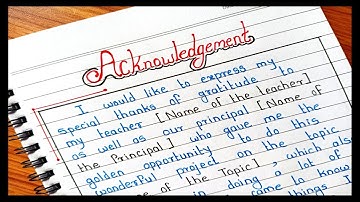 Acknowledgement
I would like to express my
special thanks of gratitude to
my teacher [Name of the teacher]
as well as our principal [Name of
the Principal] who gave me the
golden opportunity to do this
wonderful project on the topic
of the Topic], which also
in doing a lot of
came I know
things